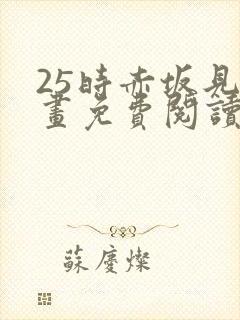 25時赤坂見
畫免費閱讀
蘇慶燦